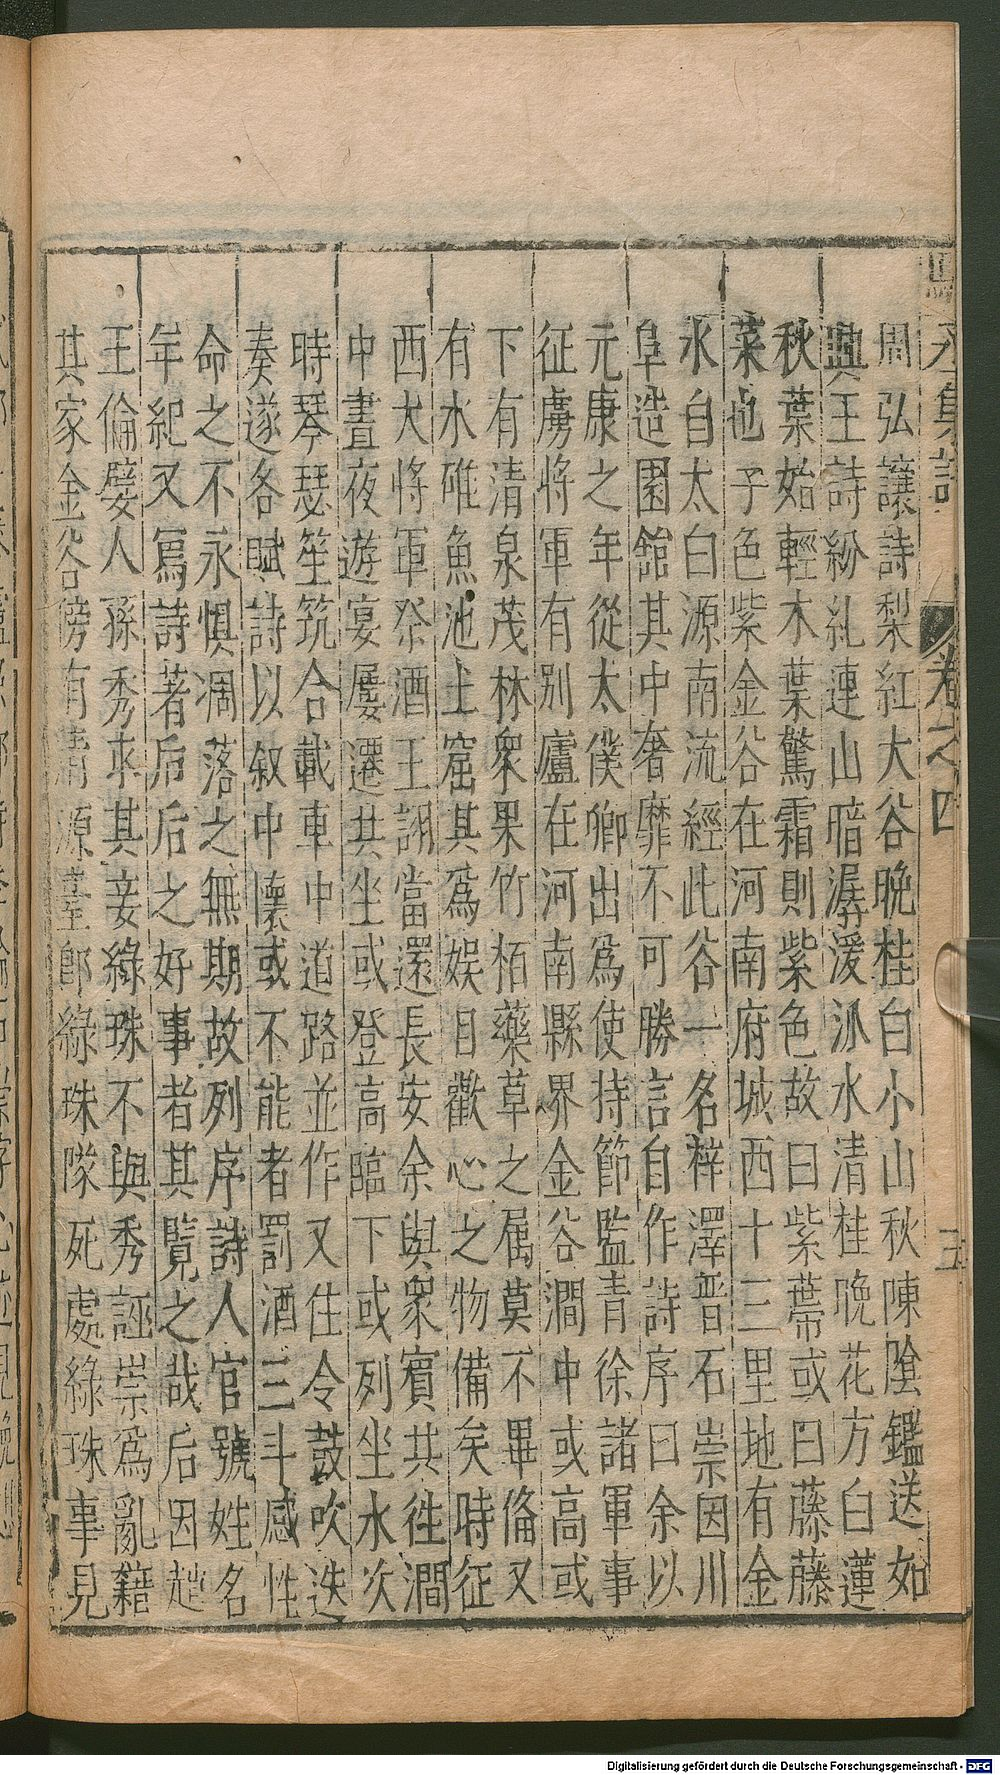 周弘讓詩梨紅大谷晚桂白小山秋陳陰鑑送如
興王詩紛糺連山暗潺湲泒水清桂晚花方白蓮
秋葉始輕木葉驚霜則紫色故曰紫葉帶或曰藤藤
菜也子色紫金谷在河南府城西十三里地有金
水自太白源南流經此谷一名梓澤晉石崇因川
阜造園館其中奢靡不可勝言自作詩序曰余以
元康之年從太僕卿出為使持節監青徐諸軍事
征虜將軍有別廬在河南縣界金谷澗中或高或
下有清泉茂林衆果竹栢藥草之属莫不畢俻又
有水碓魚池土窟其為娛目歡心之物備矣時征
西大將軍祭酒王詡當還長安余與衆賓共徃澗
中晝夜遊宴屢遷其坐或登高臨下或列坐水次
時琴瑟笙筑合載車中道路並作又住令鼓吹迭
奏遂各賦詩以叙中懷或不能者罰酒三斗感性
命之不永惧凋落之無期故列序詩人官號姓名
年紀又寫詩著后后之好事者其覽之哉后因趙
王倫嬖人孫秀求其妾綠珠不與秀誣崇為亂籍
其家金谷傍有清源臺即綠珠墜死處綠珠事見
全集註
卷之四
五
Digitalisierung gefördert durch die Deutsche Forschungsgemeinschaft - DFG